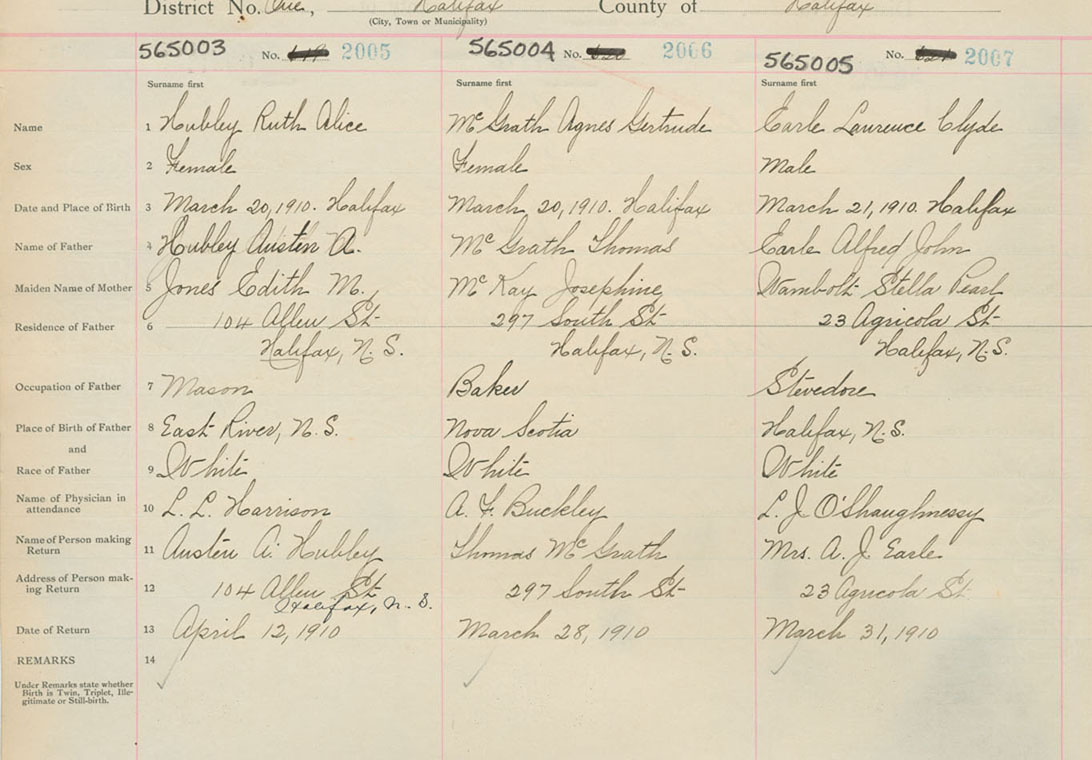 District No. One, Halifax County of Halifax
(City, Town or Municipality)
565003 No. 2005 565004 No. 2006 565005 No. 2007
Surname first Surname first Surname first
Name 1 Hubley Ruth Alice McGrath Agnes Gertrude Earle Laurence Clyde
Sex 2 Female Female Male
Date and Place of Birth 3 March 20, 1910. Halifax March, 20, 1910. Halifax March 21, 1910. Halifax
Name of Father 4 Hubley Austen A. McGrath Thomas Earle Alfred John
Maiden Name of Mother 5 Jones Edith M. McKay Josephine Wambolt Stella Pearl
Residence of Father 6 104 Allen St 297 South St 23 Agricola St
Halifax, N.S. Halifax, N.S. Halifax, N.S.
Occupation of Father 7 Mason Baker Stevedore
Place of Birth of Father 8 East River, N.S. Nova Scotia Halifax, N.S.
and
Race of Father 9 White White White
Name of Physician in
attendance 10 L. L. Harrison A. F. Buckley L. J O'Shaughnessy
Name of Person making
Return 11 Austen A. Hubley Thomas McGrath Mrs. A. J Earle
Address of Person mak-
ing Return 12 104 Allen St 297 South St 23 Agricola St
Halifax, N.S.
Date of Return 13 April 12, 1910 March 28, 1910 March 31, 1910
REMARKS 14
Under Remarks state whether
Birth is Twin, Triplet, Ille-
gitimate or Still-birth.